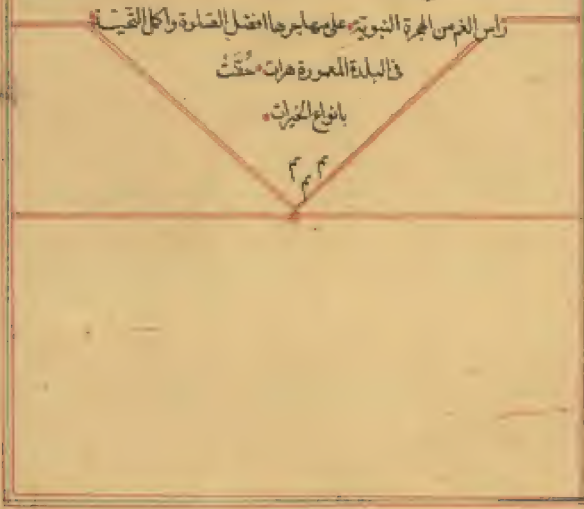 راس الغم من الهجرة النبوية على مهاجرها افضل الصلوة واكمل التحيتة
فى البلدة المعمورة هرات حُفَّتْ
بانواع الخيرات
م م م